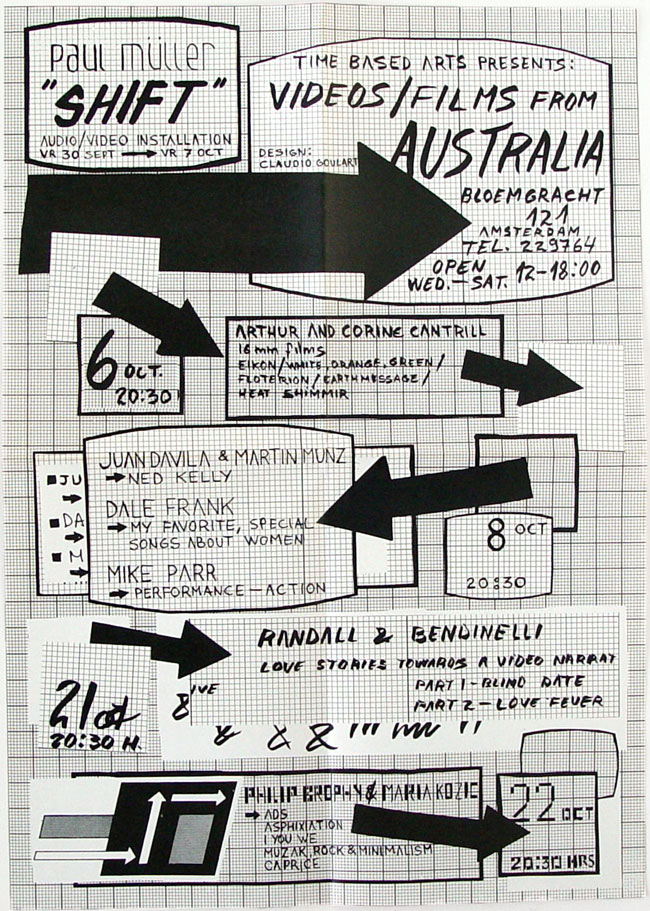 Paul müller
"SHIFT"
AUDIO/VIDEO INSTALLATION
VR 30 SEPT → VR 7 OCT.
TIME BASED ARTS PRESENTS:
VIDEOS/FILMS FROM
AUSTRALIA
DESIGN:
CLAUDIO GOULART
BLOEMGRACHT
121
AMSTERDAM
TEL. 229764
OPEN
WED.—SAT. 12-18:00
6 OCT.
20:30
ARTHUR AND CORINE CANTRILL
16 mm films
EIKON/WHITE, ORANGE, GREEN/
FLOTERION/EARTH MESSAGE/
HEAT SHIMMIR
JU
DA
M
JUAN DAVILA & MARTIN MUNZ
→ NED KELLY
DALE FRANK
→ MY FAVORITE, SPECIAL
SONGS ABOUT WOMEN
MIKE PARR
→ PERFORMANCE—ACTION
8 OCT
20:30
21 oct
20:30 H.
RANDALL & BENDINELLI
LOVE STORIES TOWARDS A VIDEO NARRAT
IVE
&
PART 1-BLIND DATE
PART 2-LOVE FEVER
& & &
PHILIP BROPHY & MARIA KOZIC
→ ADS
ASPHIXIATION
I YOU WE
MUZAK, ROCK & MINIMALISM
CAPRICE
22 OCT
20:30 HRS